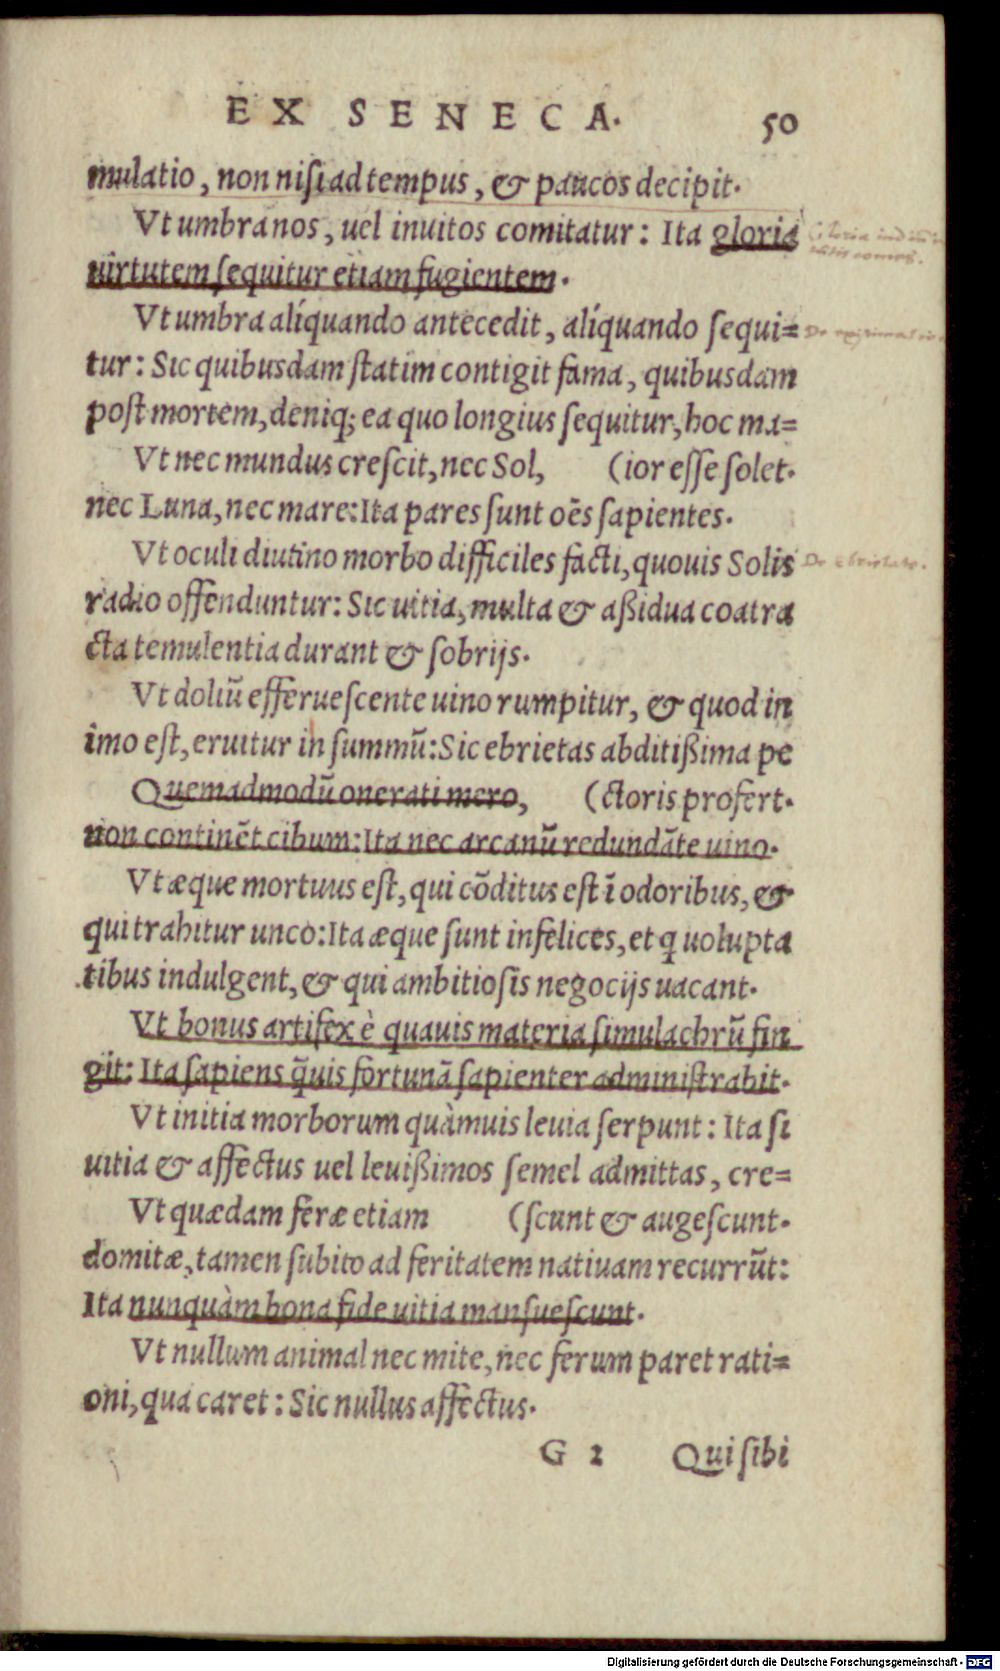 EX SENECA. 50
mulatio, non nisi ad tempus, & paucos decipit.
Vt umbra nos, uel inuitos comitatur: Ita gloria
uirtutem sequitur etiam fugientem.
Vt umbra alíquando antecedit, alíquando sequi=
tur: Sic quibusdam statim contigit fama, quibusdam
post mortem, deniq; ea quo longius sequitur, hoc ma=
Vt nec mundus crescit, nec Sol, (ior esse solet.
nec Luna, nec mare: Ita pares sunt oēs sapientes.
Vt oculi diutino morbo difficiles facti, quouis Solis
radio offenduntur: Sic uitia, multa & aßidua coatra
cta temulentia durant & sobrijs.
Vt doliū efferuescente uino rumpitur, & quod in
imo est, eruitur in summū: Sic ebrietas abditißima pe
Quemadmodū onerati mero, (ctoris profert.
non continēt cibum: Ita nec arcanū redundāte uino.
Vt æque mortuus est, qui cōditus est ī odoribus, &
qui trahitur unco: Ita æque sunt infelices, et q uolupta
tibus indulgent, & qui ambitiosis negocijs uacant.
Vt bonus artifex è quauis materia simulachrū fin
git: Ita sapiens q̄uis fortunā sapienter administrabit.
Vt initia morborum quàmuis leuia serpunt: Ita si
uitia & affectus uel leuißimos semel admittas, cre=
Vt quædam feræ etiam (scunt & augescunt.
domitæ, tamen subito ad feritatem natiuam recurrūt:
Ita nunquàm bona fide uitia mansuescunt.
Vt nullum animal nec mite, nec ferum paret rati=
oni, qua caret: Sic nullus affectus.
G 2 Qui sibi
De ebrietate.
Digitalisierung gefördert durch die Deutsche Forschungsgemeinschaft - DFG